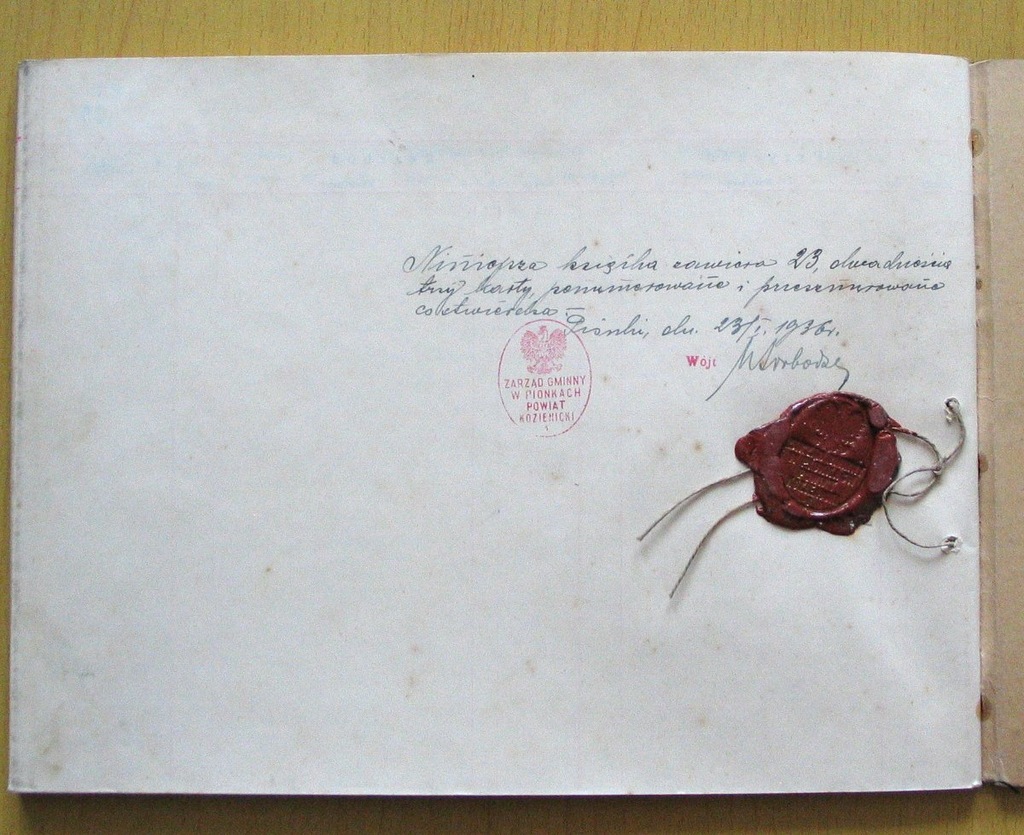 Niniejsza książka zawiera 23, dwadzieścia
trzy karty, ponumerowane i przesznurowane
co stwierdza.
Pionki, dn. 23/I. 1936r.
Wójt
ZARZĄD GMINNY
W PIONKACH
POWIAT
KOZIENICKI
1